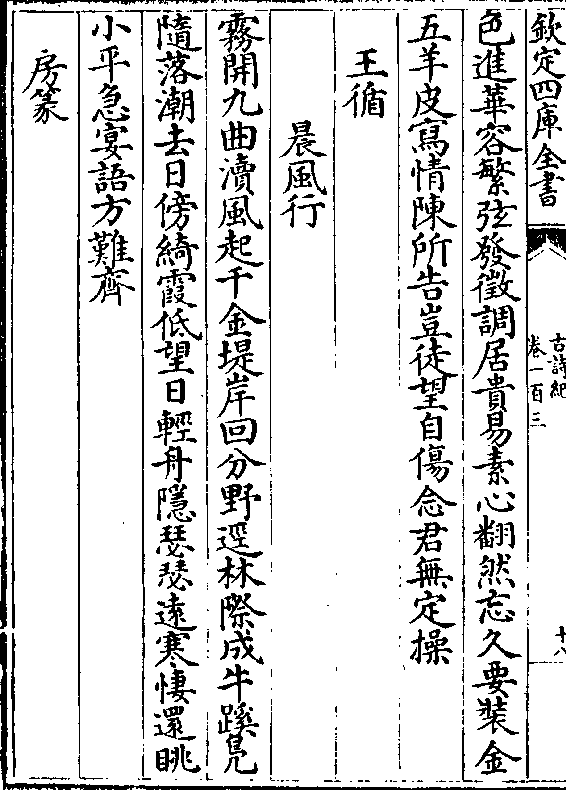 欽定四庫全書
古詩紀
卷一百三
十八
色進華容繁弦發徵調居貴易素心翻然忘久要裝金
五羊皮寫情陳所告豈徒望自傷念君無定操
王循
晨風行
霧開九曲瀆風起千金堤岸回分野逕林際成牛蹊鳧
隨落潮去日傍綺霞低望日輕舟隱瑟瑟遠寒悽還眺
小平急宴語方難齊
房篆